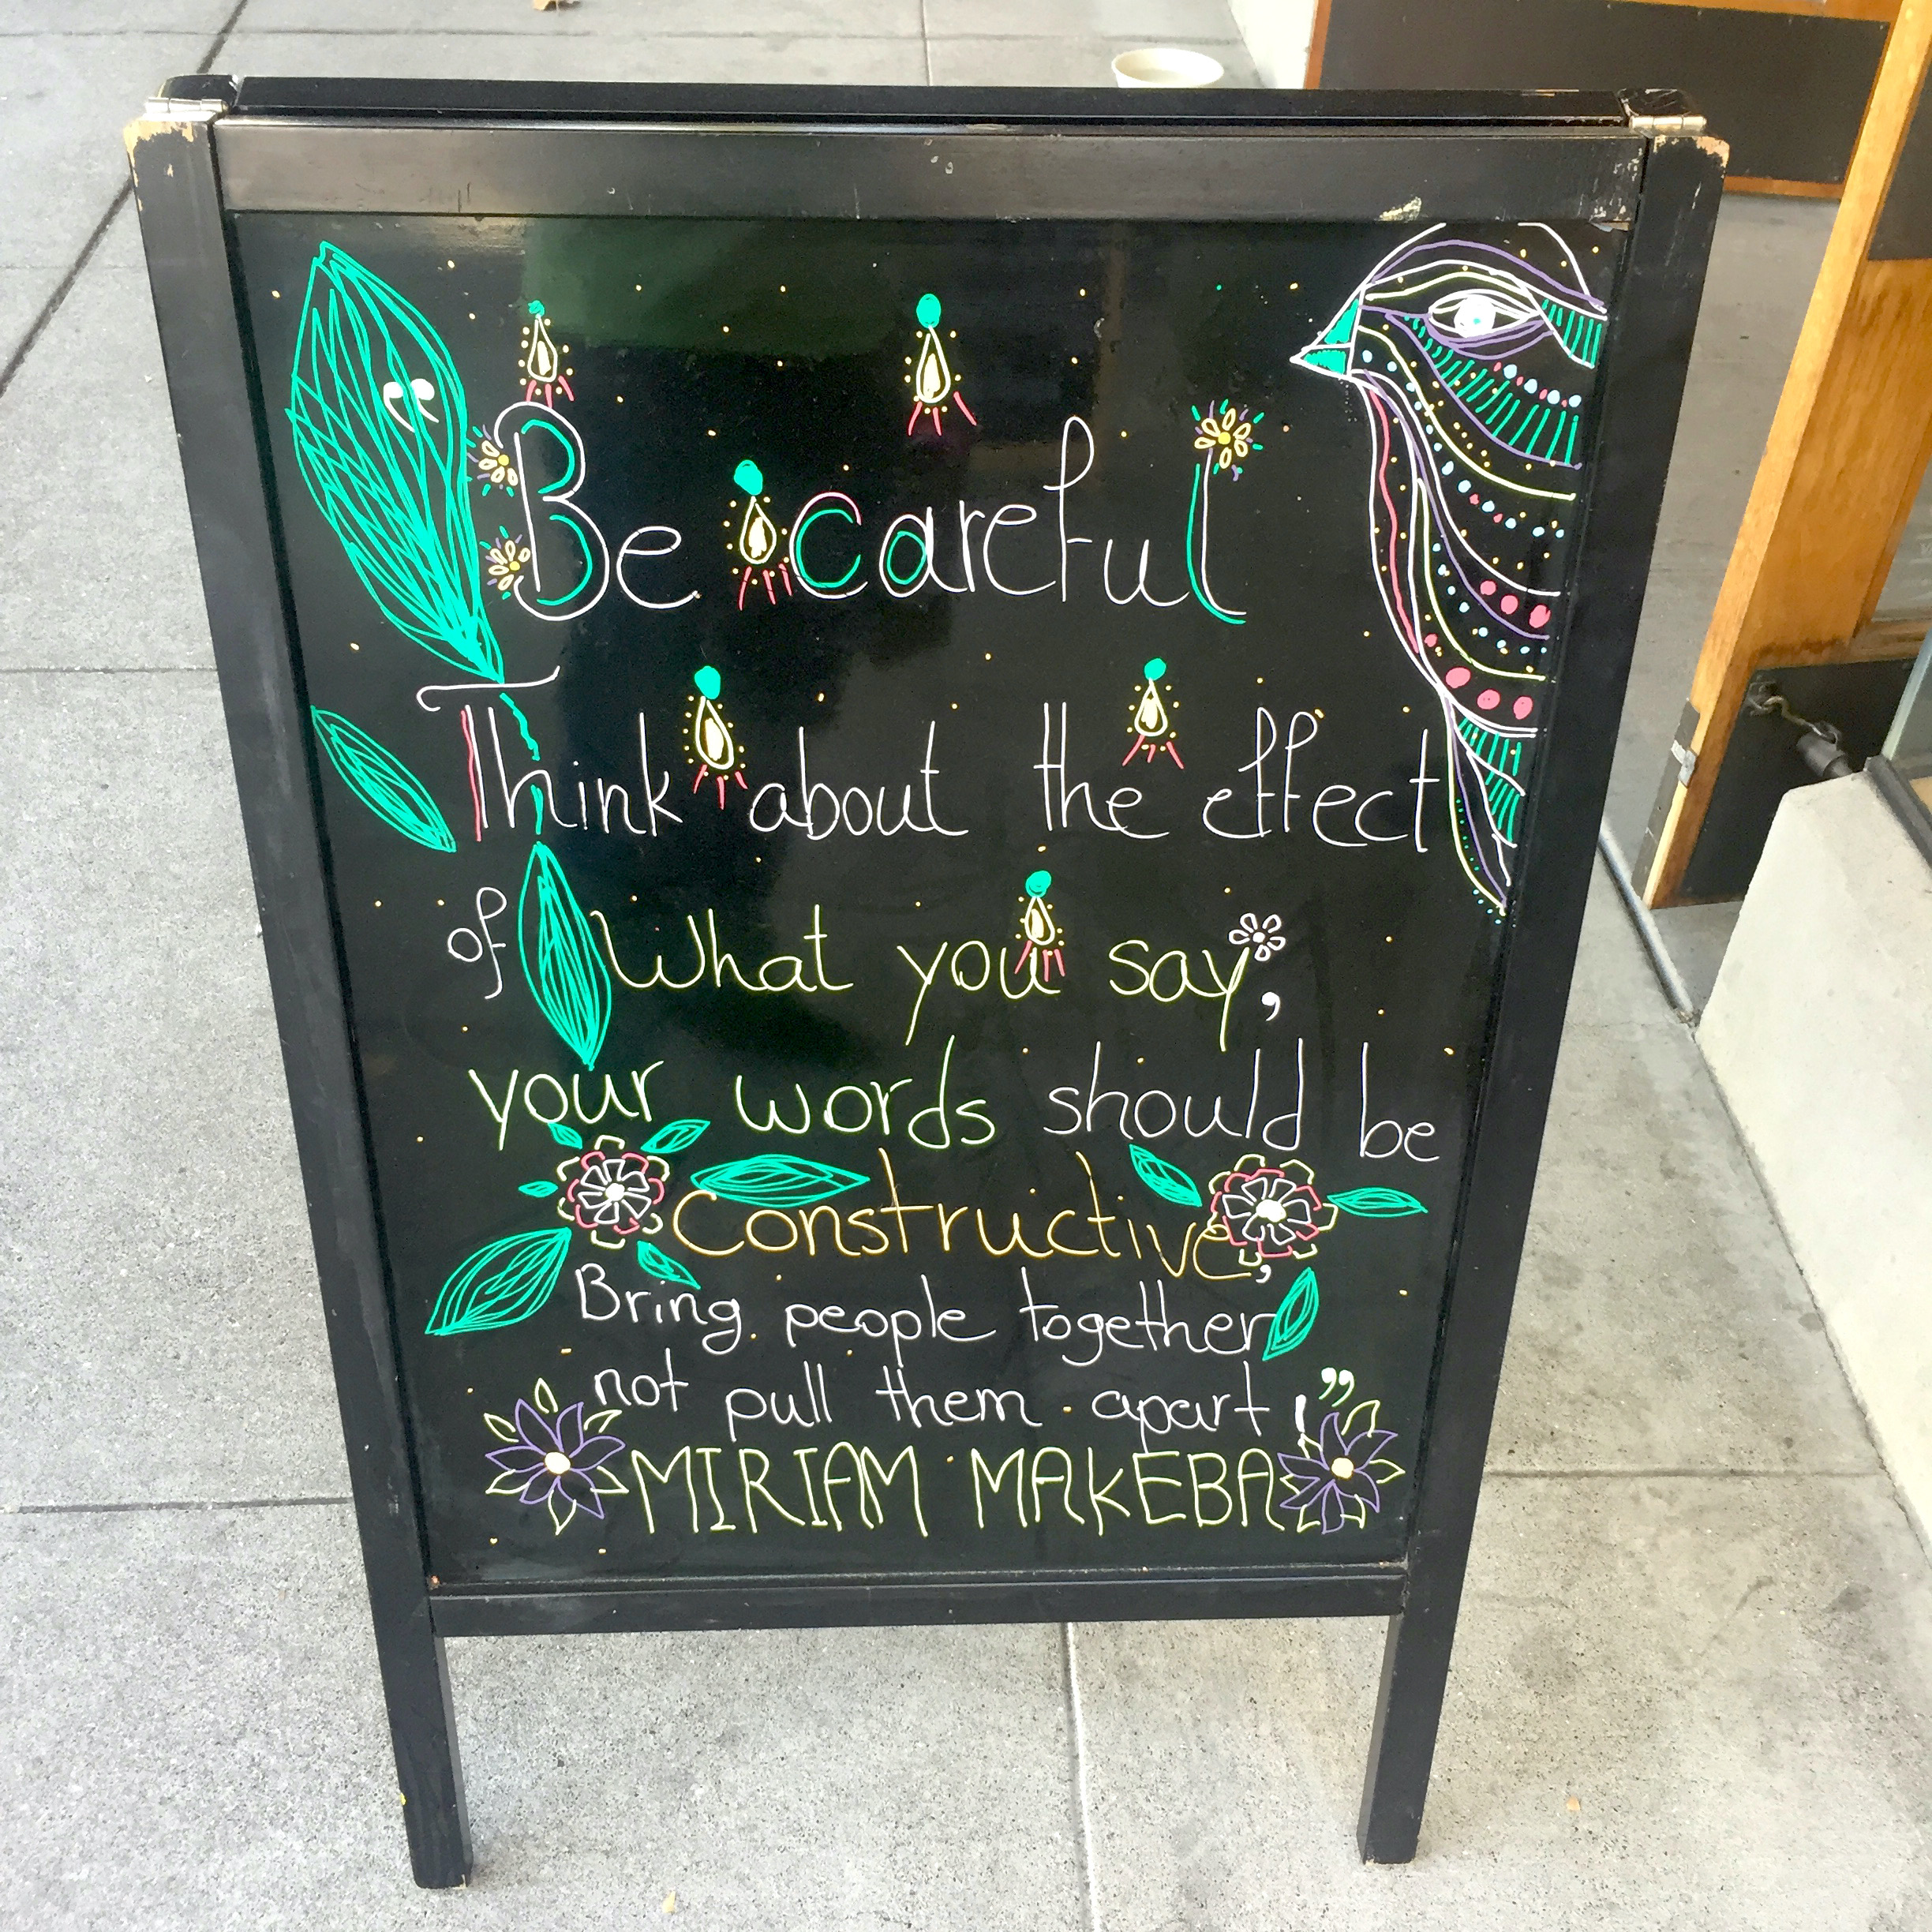 “Be careful
Think about the effect
of What you say,
your words should be
Constructive,
Bring people together
not pull them apart!”
MIRIAM MAKEBA